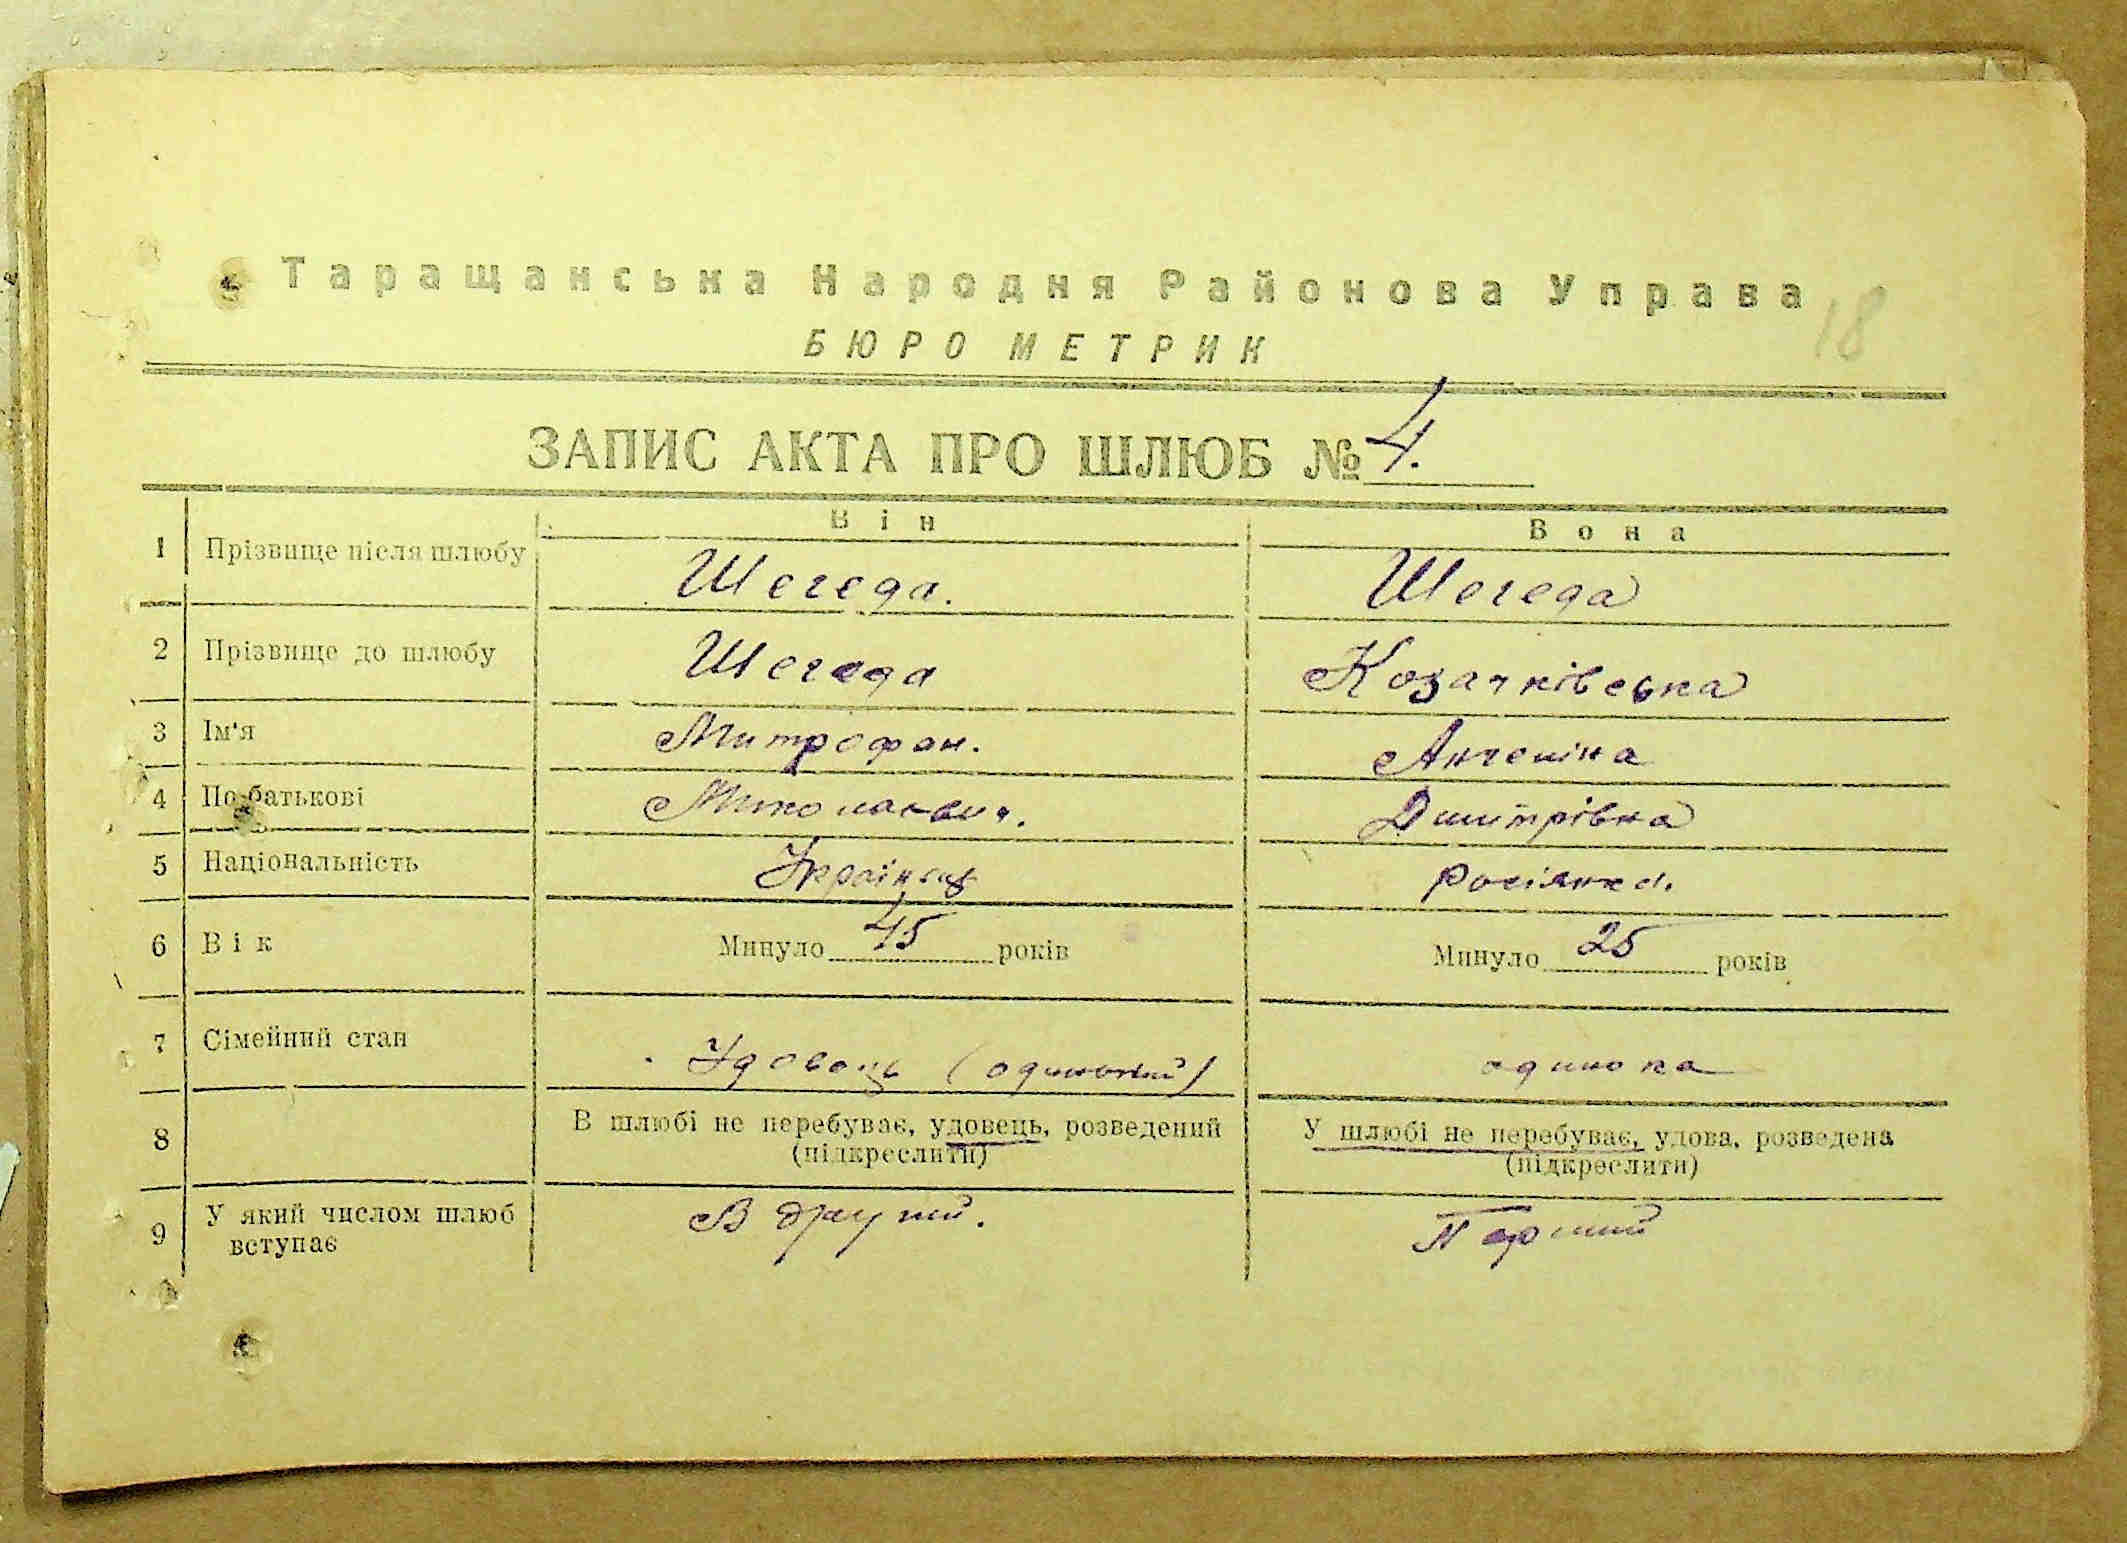 Таращанська Народня Районова Управа
18
БЮРО МЕТРИК
ЗАПИС АКТА ПРО ШЛЮБ № 4.
Він Вона
1 Прізвище після шлюбу Шегеда. Шегеда
2 Прізвище до шлюбу Шегеда Козачківська
3 Ім'я Митрофан. Ангеліна
4 По батькові Миколаєвич. Дмитрівна
5 Національність Українець росіянка.
6 Вік Минуло 45 років Минуло 25 років
7 Сімейний стан Удовець (одинокий) одинока
8 В шлюбі не перебуває, удовець, розведений У шлюбі не перебуває, удова, розведена
(підкреслити) (підкреслити)
9 У який числом шлюб В другий. Перший
вступає